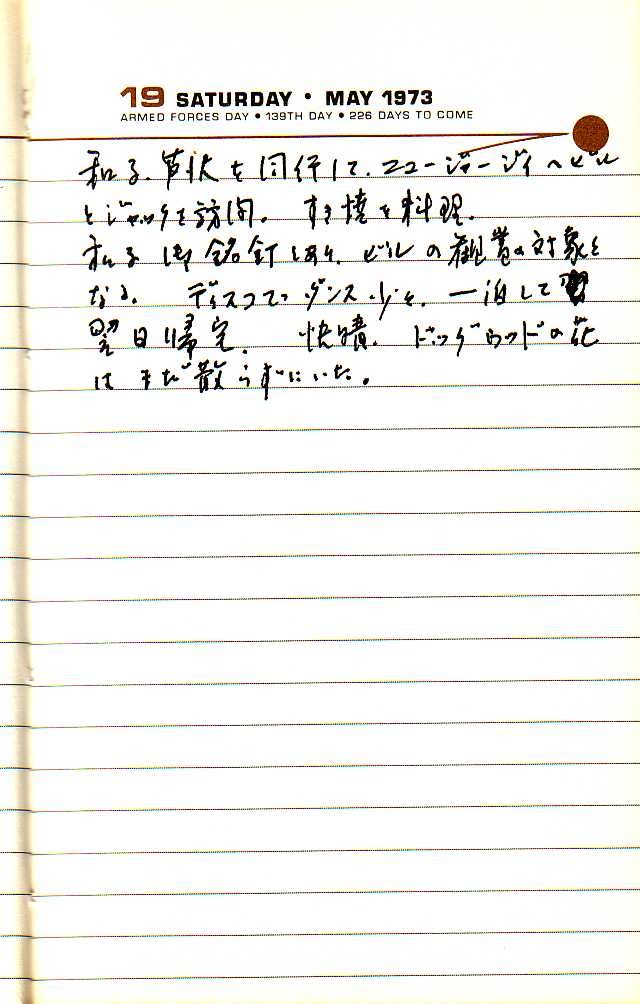 19 SATURDAY • MAY 1973
ARMED FORCES DAY • 139TH DAY • 226 DAYS TO COME
和子、を同行して、ニュージャージイへビル
とジャックを訪問。すき焼を料理。
和子は銘釘し、ビルの観賞の対象と
なる。ディスコでダンス少々、一泊して
翌日帰宅。快晴。ドッグウッドの花
はまだ散らずにいた。